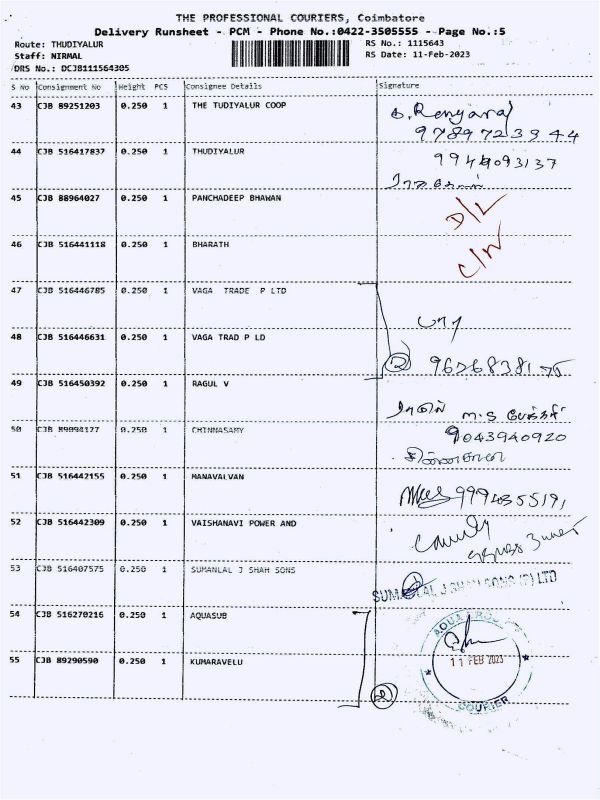 THE PROFESSIONAL COURIERS, Coimbatore
Delivery Runsheet - PCM - Phone No.:0422-3505555 - Page No.:5
Route: THUDIYALUR
RS No.: 1115643
Staff: NIRMAL
RS Date: 11-Feb-2023
DRS No.: DCJB111564305
S No Consignment No Height PCS Consignee Details Signature
43 CJB 89251203 0.250 1 THE TUDIYALUR COOP
9789723944
44 CJB 516417837 0.250 1 THUDIYALUR
9944093137
45 CJB 88964027 0.250 1 PANCHADEEP BHAWAN D/L
46 CJB 516441118 0.250 1 BHARATH
47 CJB 516446785 0.250 1 VAGA TRADE P LTD
48 CJB 516446631 0.250 1 VAGA TRAD P LD
2
49 CJB 516450392 0.250 1 RAGUL V
M.S
50 CJB 89094177 0.250 1 CHINNASAMY 9043940920
51 CJB 516442155 0.250 1 MANAVALVAN
52 CJB 516442309 0.250 1 VAISHANAVI POWER AND
53 CJB 516407575 0.250 1 SUMANLAL J SHAH SONS
SUMANLAL J SHAH SONS (P) LTD
54 CJB 516270216 0.250 1 AQUASUB
55 CJB 89290590 0.250 1 KUMARAVELU
11 FEB 2023
2
COURIER